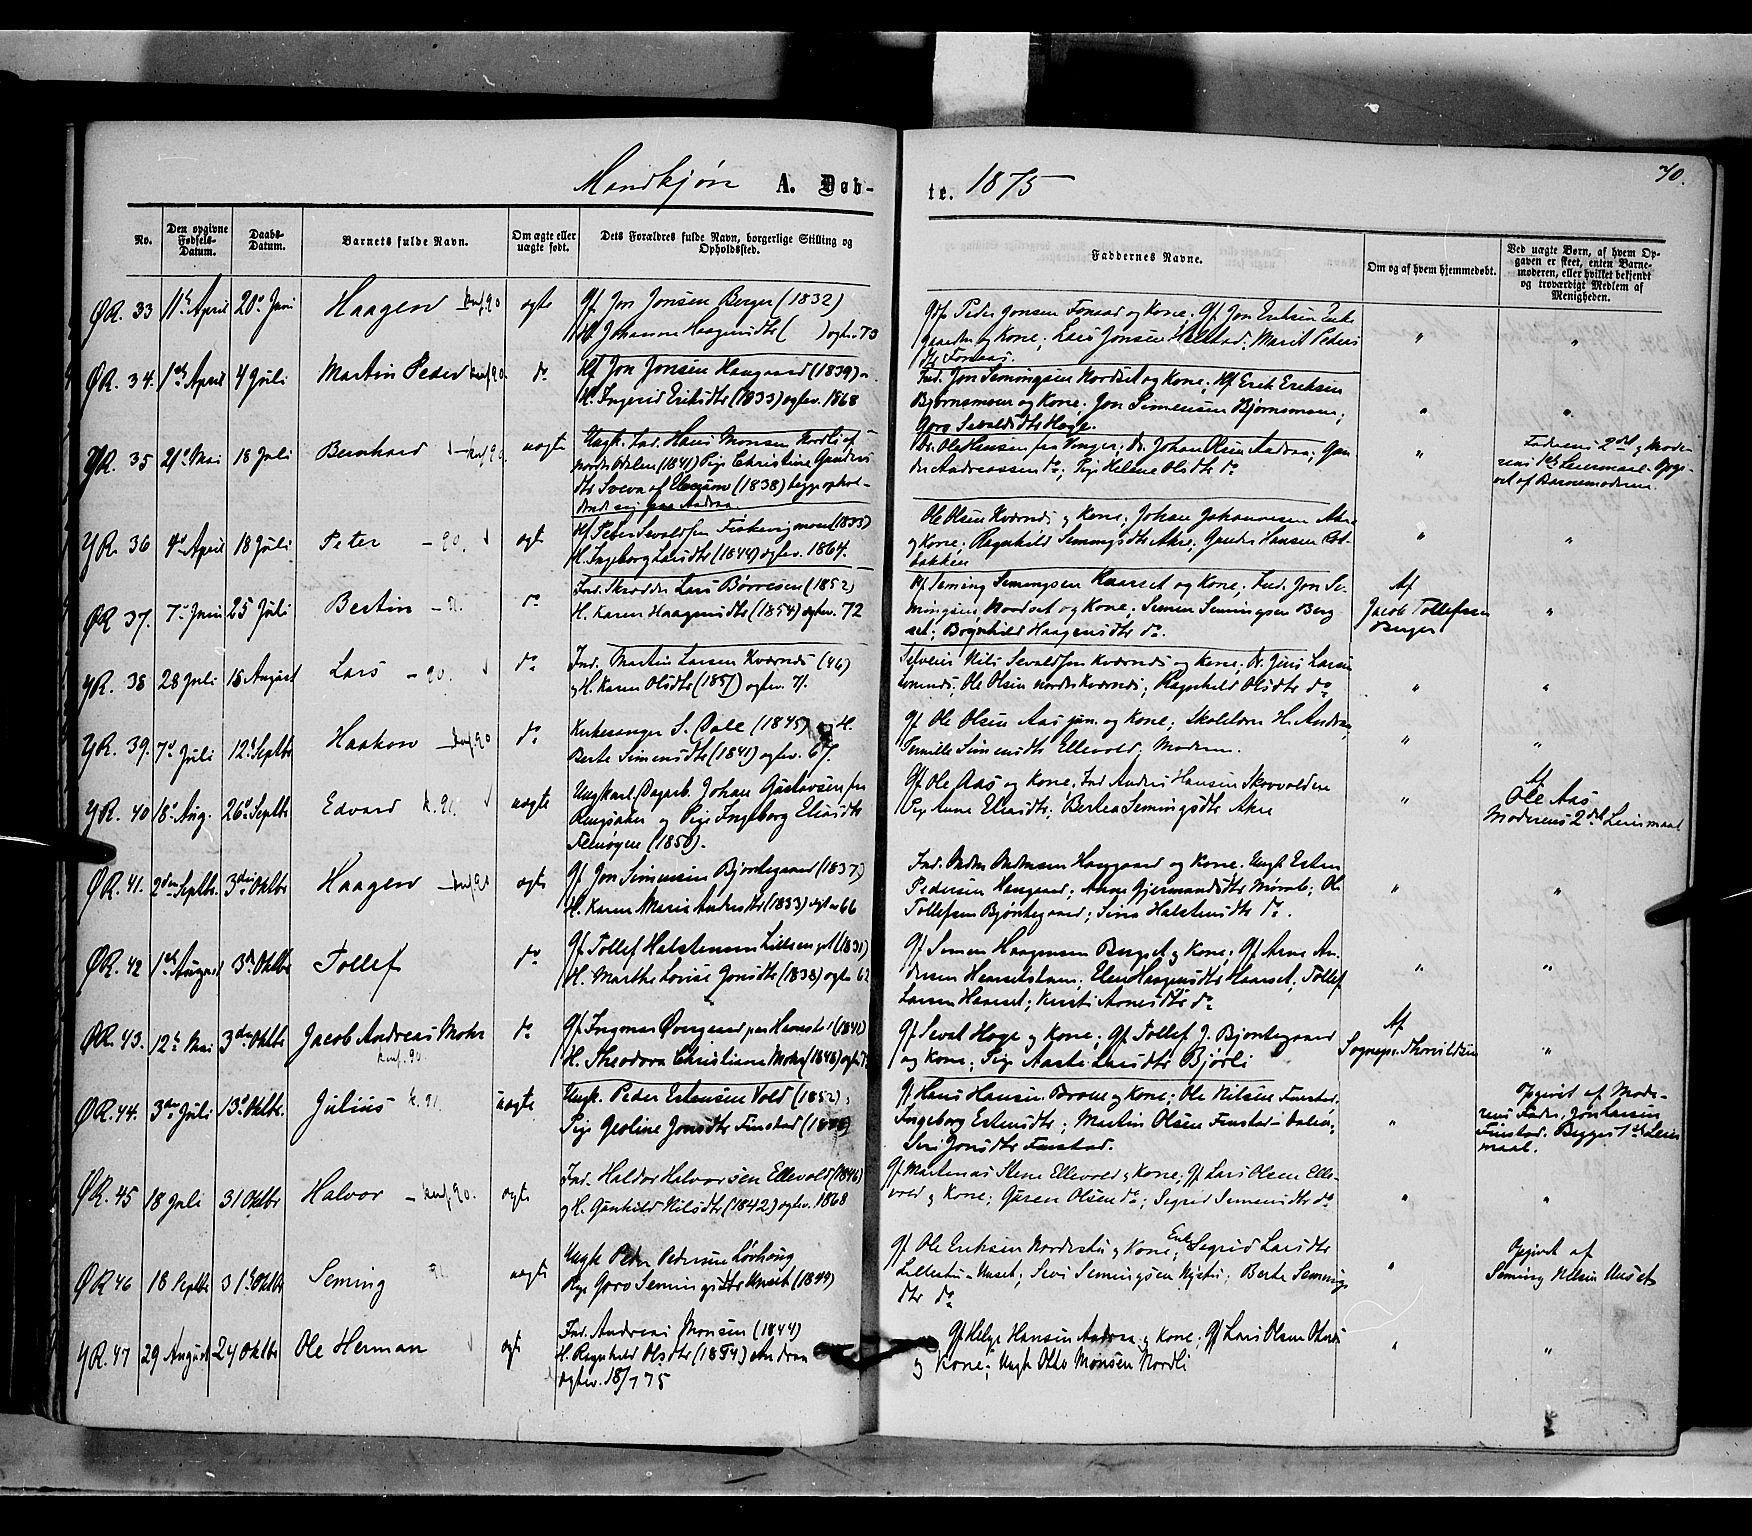 70.
Mandkjøn A. Døb-
te. 1875
No.
Den opgivne Fødsels-Datum.
Daabs-Datum.
Barnets fulde Navn.
Om ægte eller uægte født.
Dets Forældres fulde Navn, borgerlige Stilling og Opholdssted.
Faddernes Navne.
Om og af hvem hjemmedøbt.
Ved uægte Børn, af hvem Opgaven er skeet, enten Barnemoderen, eller hvilket bekjendt og troværdigt Medlem af Menigheden.
ØR. 33 11te April 20de Juni Haagen konf. 90 ægte
Gf. Jon Jonsen Berger (1832)
H. Johanne Haagensdtr ( ) ægtev. 73
Gf. Peder Jonsen Fonaas og Kone; Gf. Jon Eriksen
og Kone; Lars Jonsen; Marit Peders
dtr Fonaas.
ØR. 34. 1ste April 4 Juli Martin Peder konf. 90. do
Jon Jonsen Haugaard (1839)
H. Ingerid Eriksdtr (1833) ægtev. 1868
Ind. Jon Semingsen Nordset og Kone; Erik Eriksen
Bjørnsmoen og Kone; Jon Simensen Bjørnsmoen;
Goro Sevaldsdtr Hoge.
ØR. 35 21de Mai 18 Juli Bernhard konf. 90. uægte
Ungk. Ind. Hans Monsen Nordli af
Nordre Odalen (1841) Pige Christine Gunders
dtr af Elverum (1838) begge ophol-
dende sig paa Aadraa
Ole Hansen fra Vinger; Johan Olsen Aadraa; Gun-
der Andreassen do; Pige Helene Olsdtr do
Faderens 2det og Mode-
rens 1ste Leiermaal. Opgi-
vet af Barnemoderen.
YR. 36 4de April 18 Juli Peter - 90. ægte
Peter Sevaldsen Fiskevigmoen (1835)
H. Ingeborg Larsdtr (1844) ægtev. 1864.
Ole Olsen Kværnes og Kone; Johan Johannesen Akre
og Kone; Ragnhild Semingsdtr Akre; Gunder Hansen
bakken
ØR. 37. 7de Juni 25 Juli Bertin do
Ind. Skrædder Lars Børresen (1852)
H. Karen Haagensdtr (1854) ægtev. 72
Seming Semingsen Haarset og Kone; Ind. Jon Se-
mingsen Nordset og Kone; Simen Semingsen Berg
set; Bognhild Haagensdtr do.
Af
Jacob Tollefsen
Berger
YR. 38 28 Juli 15 August Lars - 90. do
Ind. Martin Larsen Kværnes (46)
og H. Karen Olsdtr (1851) ægtev. 71.
Selveier Nils Sevaldsen Kværnes og Kone; Jens Larsen
Ole Olsen Nordre Kværnes; Ragnhild Olsdtr do
YR. 39. 7de Juli 12te Septbr Haakon konf. 90 do
Kirkesanger S. Dale (1845) og H.
Berte Simensdtr (1841) ægtev. 67.
Gf. Ole Olsen Aas jun. og Kone; Skolelærer H. Aadraa,
Pernille Simensdtr Ellevold; Moderen.
YR. 40 18de Aug. 26de Septbr Edvard k. 91. uægte
Ungkarl Dagarb. Johan Gustavsen fra
Ringsaker og Pige Ingeborg Eliasdtr
(1850).
Gf. Ole Aas og Kone. Ind Anders Hansen Skovvolden
Pige Anne Eliasdtr; Berthea Semingsdtr Akre
Af
Ole Aas
Moderens 2det Leiermaal
ØR. 41. 2den Septbr. 3die Oktbr Haagen konf. 91 ægte
Gf. Jon Simensen Bjøntegaard (1837)
H. Karen Marie Andersdtr (1833) ægtev 66
Ind. Haugaard og Kone. Ungk Esten
Pedersen Haugaard; Anne Gjermundsdtr; Ole
Tollefsen Bjøntegaard; Siri Halstensdtr do.
ØR. 42 1ste August 3die Oktbr Tollef do
Gf. Tollef Halstensen (1831)
H. Marthe Lovise Jonsdtr (1838) ægtev 62
Gf. Simen Haagensen Bergset og Kone; Gf. Arne An-
dersen; Elen Haagensdtr Haarset; Tollef
Larsen Haarset; Kirsti Arnesdtr do
ØR. 43. 12te Mai 3die Oktbr Jacob Andreas Mohr
konf. 90. do
Gf. Ingmar Øvergaard (1841)
H. Theodora Christiane Mohr (1848)
Gf. Seval Hoge og Kone; Gf. Tollef J. Bjøntegaard
og Kone; Pige Aaste Larsdtr Bjørli
Af
Sognepr. Thorvildsen
ØR. 44. 3die Juli 13de Oktbr. Julius k. 91. uægte
Ungk. Peder Estensen Vold (1852);
Pige Geoline Jonsdtr Finstad
Gf Hans Hansen Broen og Kone; Ole Nilsen Finstad.
Ingeborg Estensdtr; Martin Olsen Finstad;
Siri Jonsdtr Finstad.
Opgivet af Mode-
rens Fader, Jon Larsen
Finstad. Begges 1ste Leier
maal.
ØR. 45 18 Juli 31 Oktbr Halvor - konf. 90. ægte
Ind. Haldor Halvorsen Ellevold (1846)
og H. Gunhild Nilsdtr (1842) ægtev. 1868
Gf Martinus Steen Ellevold og Kone; Gf Lars Olsen Elle-
vold og Kone; Guren Olsen do; Segrid Simensdtr do
ØR. 46 18 Septbr 31te Oktbr Seming 91. uægte
Ungk Peder Pedersen Løvhaug
Pige Goro Semingsdtr Unset (1849)
Gf Ole Eriksen Nordestu og Kone; Enke Segrid Larsdtr
Lillestu-Unset; Sevi Semingsen Nystu; Berte Semings
dtr do
Opgivet af
Seming Nilsen Unset
YR. 47 29 August 24 Oktbr Ole Herman ægte
Ind. Andreas Monsen (1844)
H. Ragnhild Olsdtr (1854) Aadraa
ægtev. 18/7 75
Gf Helge Hansen Aadraa og Kone; Gf Lars Olsen
og Kone; Ungk Otto Monsen Nordli